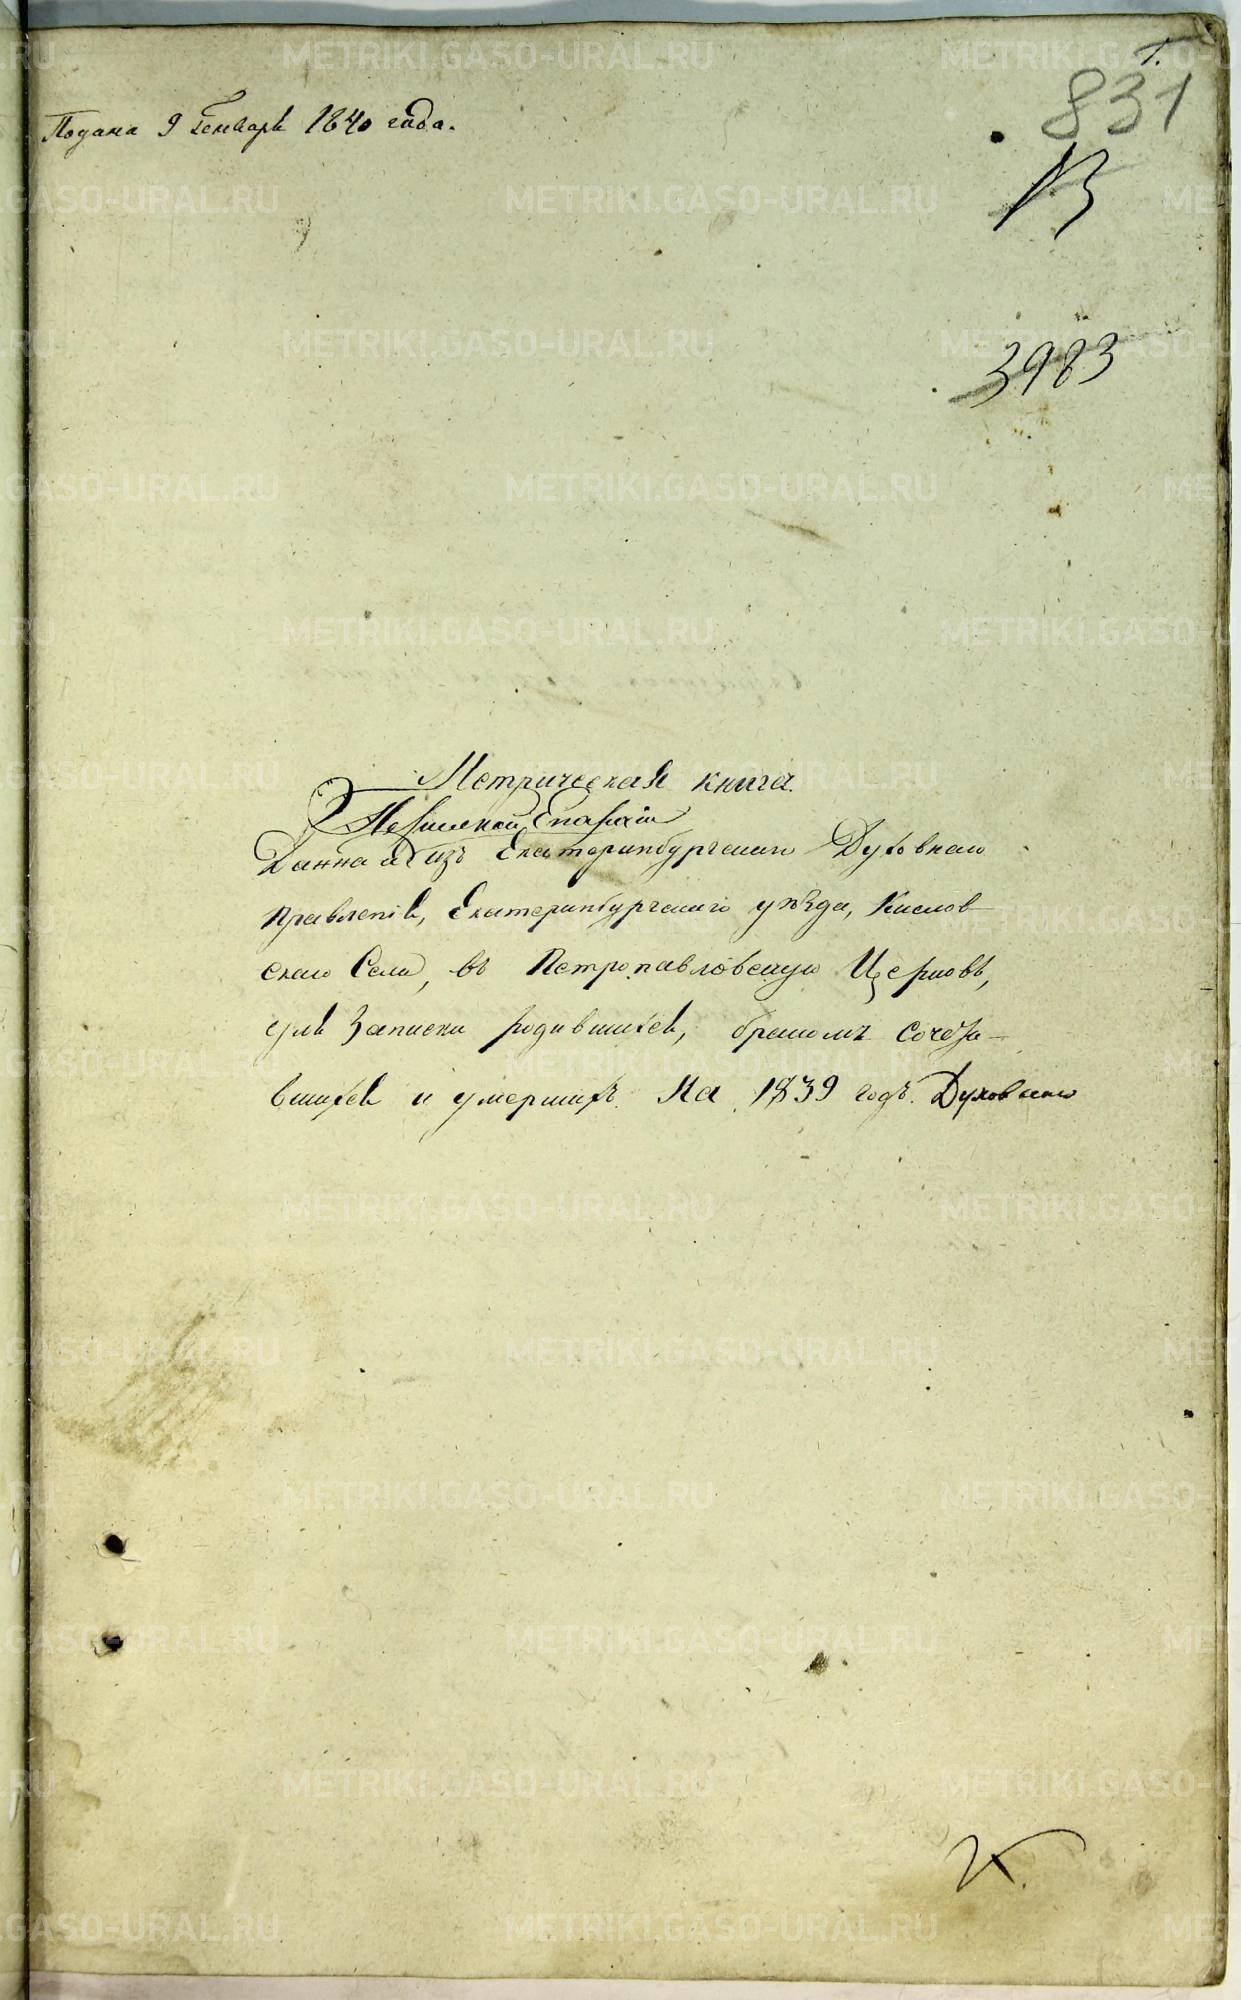 1.
831
Подана 9 Генваря 1840 года.
13
3983
Метрическая книга.
Пермской Епархіи
Данная изъ Екатеринбургскаго Духовнаго
Правленія, Екатеринбургскаго уѣзда, Кислов
скаго Села, въ Петропавловскую Церковь,
для Записки родившихся, бракомъ сочета-
вшихся и умершихъ. На 1839 годъ. Духовнаго
METRIKI.GASO-URAL.RU